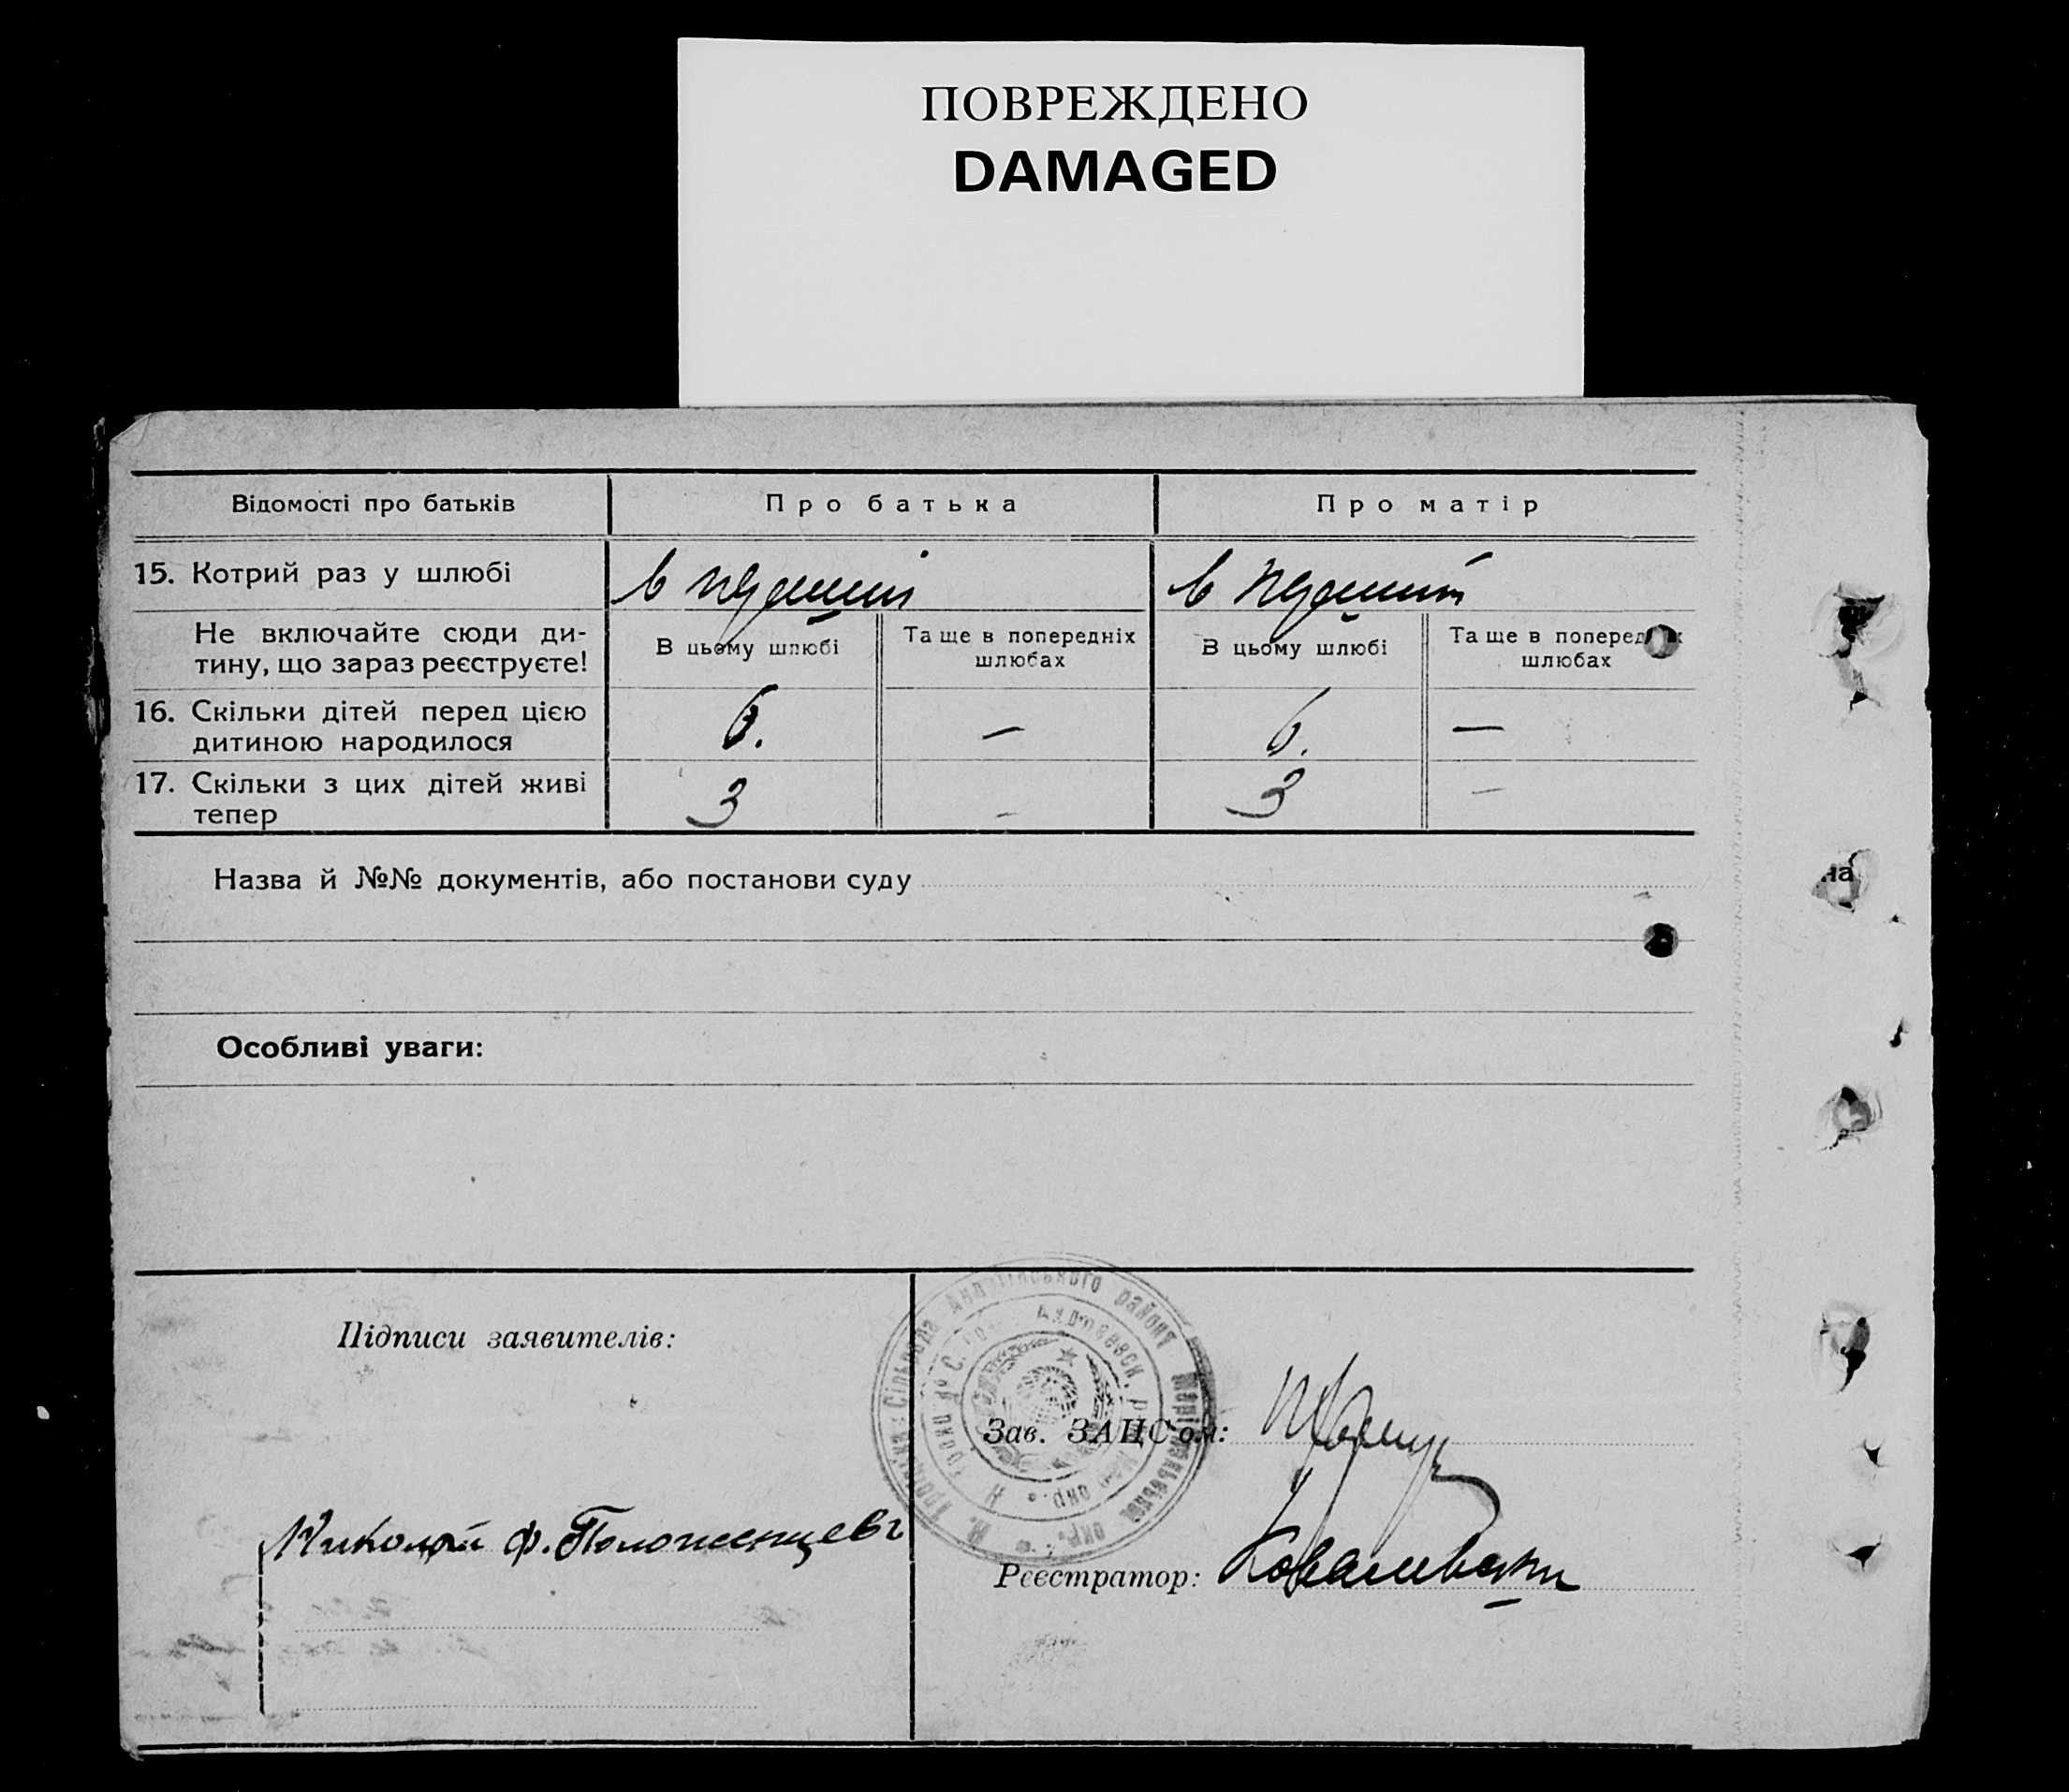 ПОВРЕЖДЕНО
DAMAGED
Відомості про батьків
Про батька
Про матір
15. Котрий раз у шлюбі
в перший
в перший
Не включайте сюди ди-
тину, що зараз реєструєте!
В цьому шлюбі
Та ще в попередніх
шлюбах
В цьому шлюбі
Та ще в поперед
шлюбах
16. Скільки дітей перед цією
дитиною народилося
6.
—
6.
—
17. Скільки з цих дітей живі
тепер
3
—
3
—
Назва й №№ документів, або постанови суду
на
Особливі уваги:
Підписи заявителів:
района
окр.
Зав. ЗАЦС'ом:
Николай Ф. Положенцевъ
Реєстратор: Ковалевский